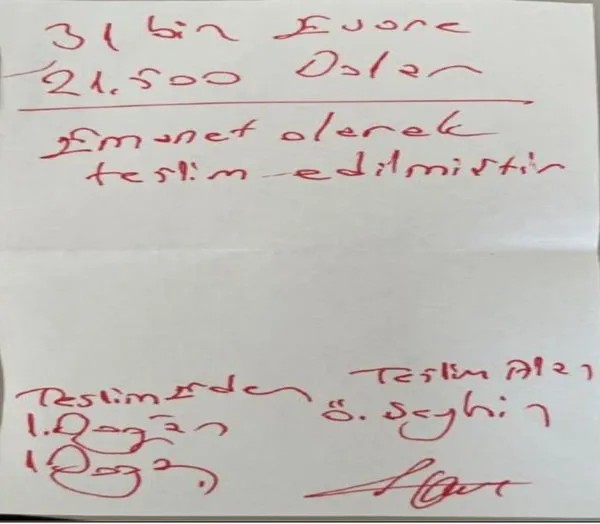 31 bin Euore
21.500 Dolar
Emanet olarak
teslim edilmiştir
Teslim Eden
Teslim Alan
İ. Doğan
Ö. Seyhin
İ Doğan